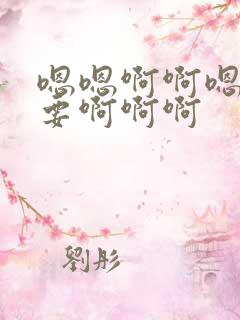 嗯嗯啊啊嗯
要啊啊啊
劉彤